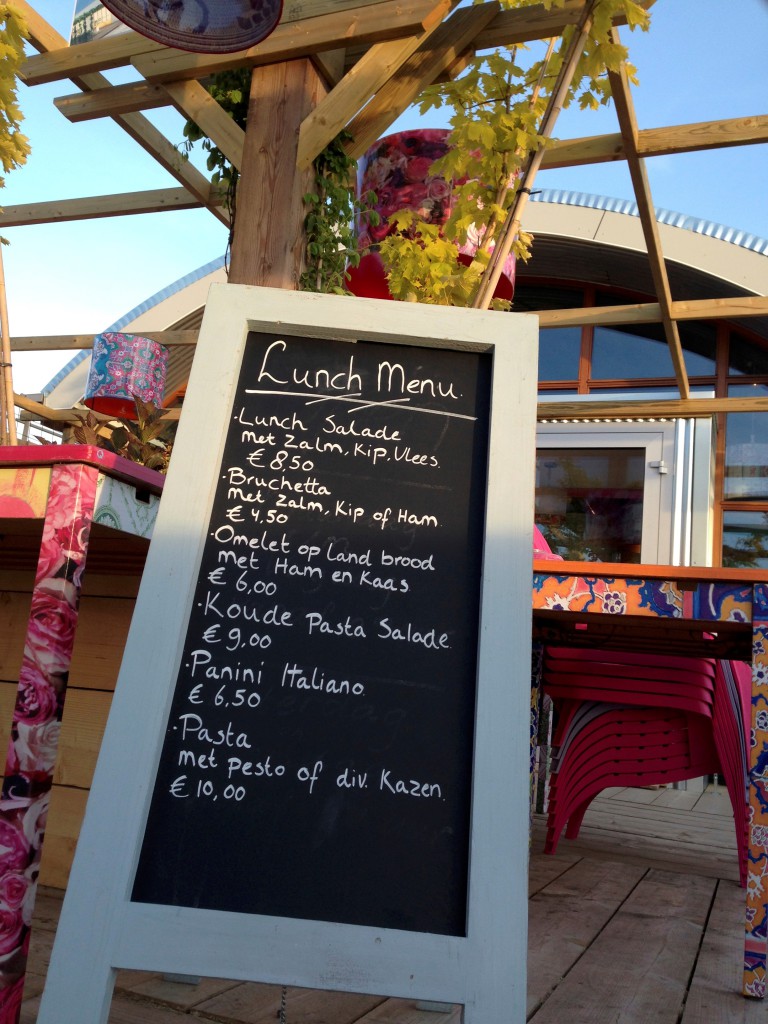 Lunch Menu.
·Lunch Salade
met Zalm, Kip, Vlees.
€ 8,50
·Bruchetta
met Zalm, Kip of Ham
€ 4,50
·Omelet op Land brood
met Ham en Kaas
€ 6,00
·Koude Pasta Salade.
€ 9,00
·Panini Italiano
€ 6,50
·Pasta
met pesto of div. Kazen.
€ 10,00